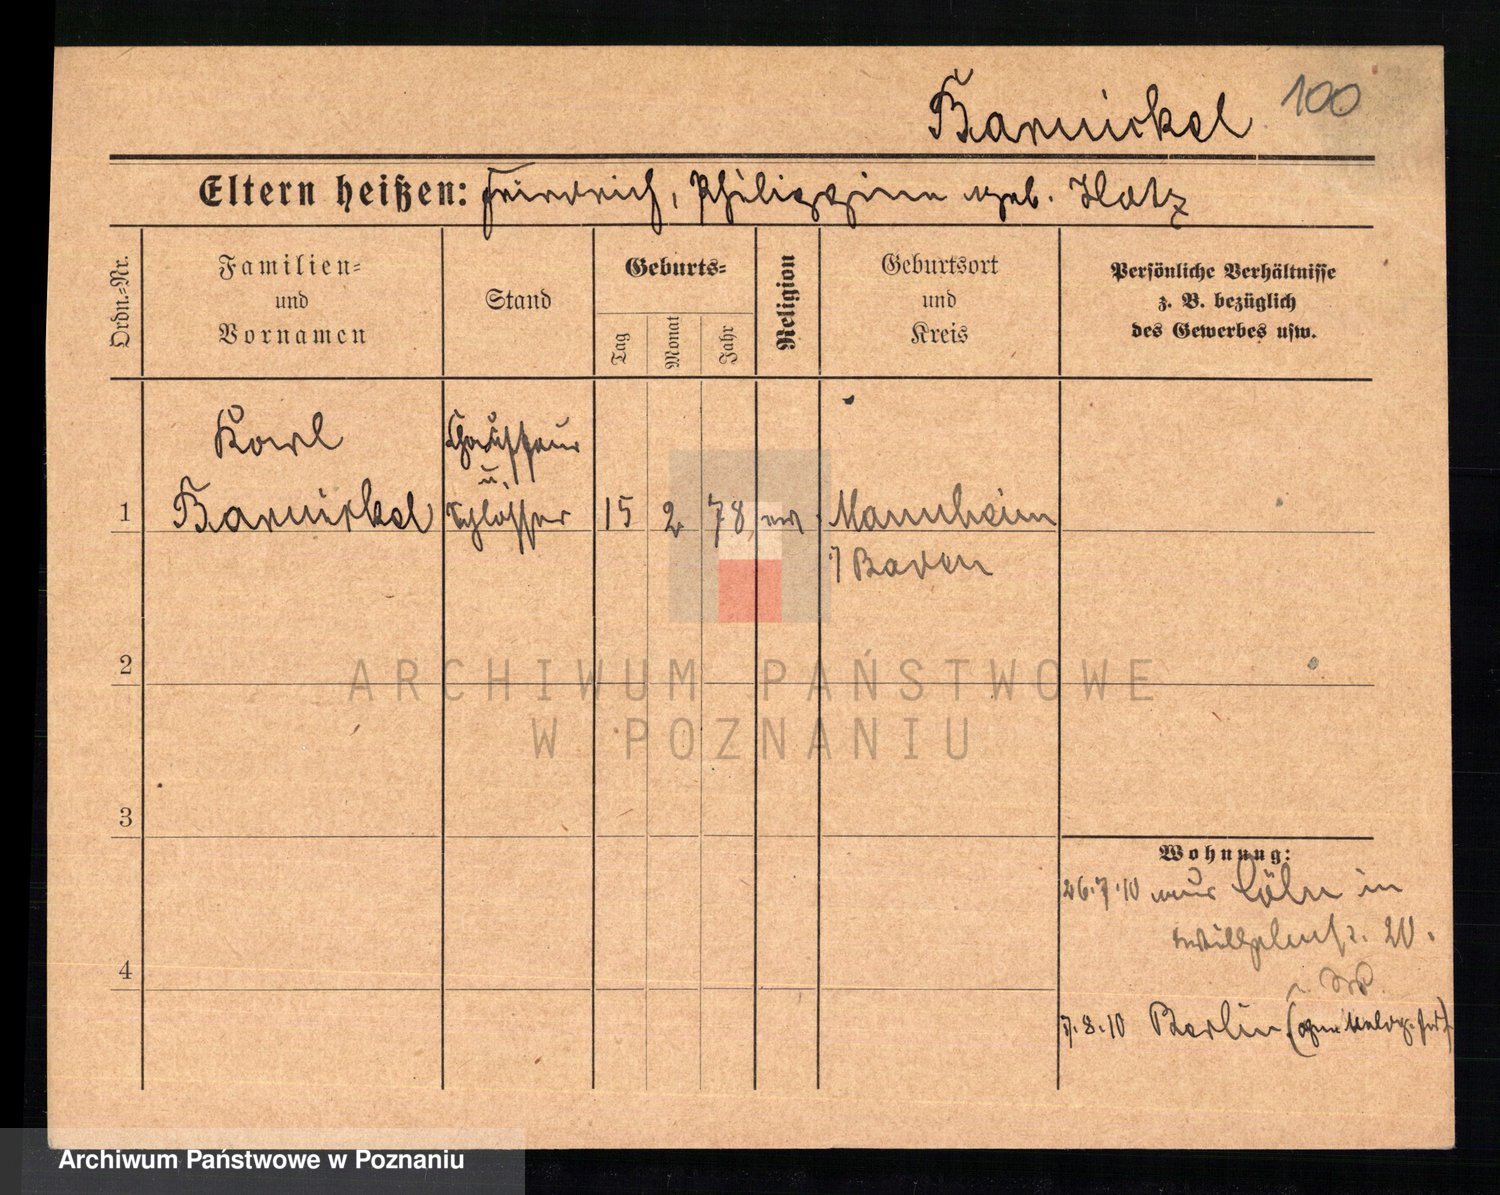 Barnickel 100
Eltern heißen: Friedrich, Philippine geb. Hotz
Ordn.-Nr.
Familien-
und
Vornamen
Stand
Geburts-
Tag
Monat
Jahr
Religion
Geburtsort
und
Kreis
Persönliche Verhältnisse
z. B. bezüglich
des Gewerbes usw.
Karl
Chauffeur
u.
1 Barnickel Schlosser 15 2 78 Mannheim
Baden
2
3
4
Wohnung:
26.7.10 Cöln in
20.
7.8.10 Berlin
ARCHIWUM PAŃSTWOWE
W POZNANIU
Archiwum Państwowe w Poznaniu